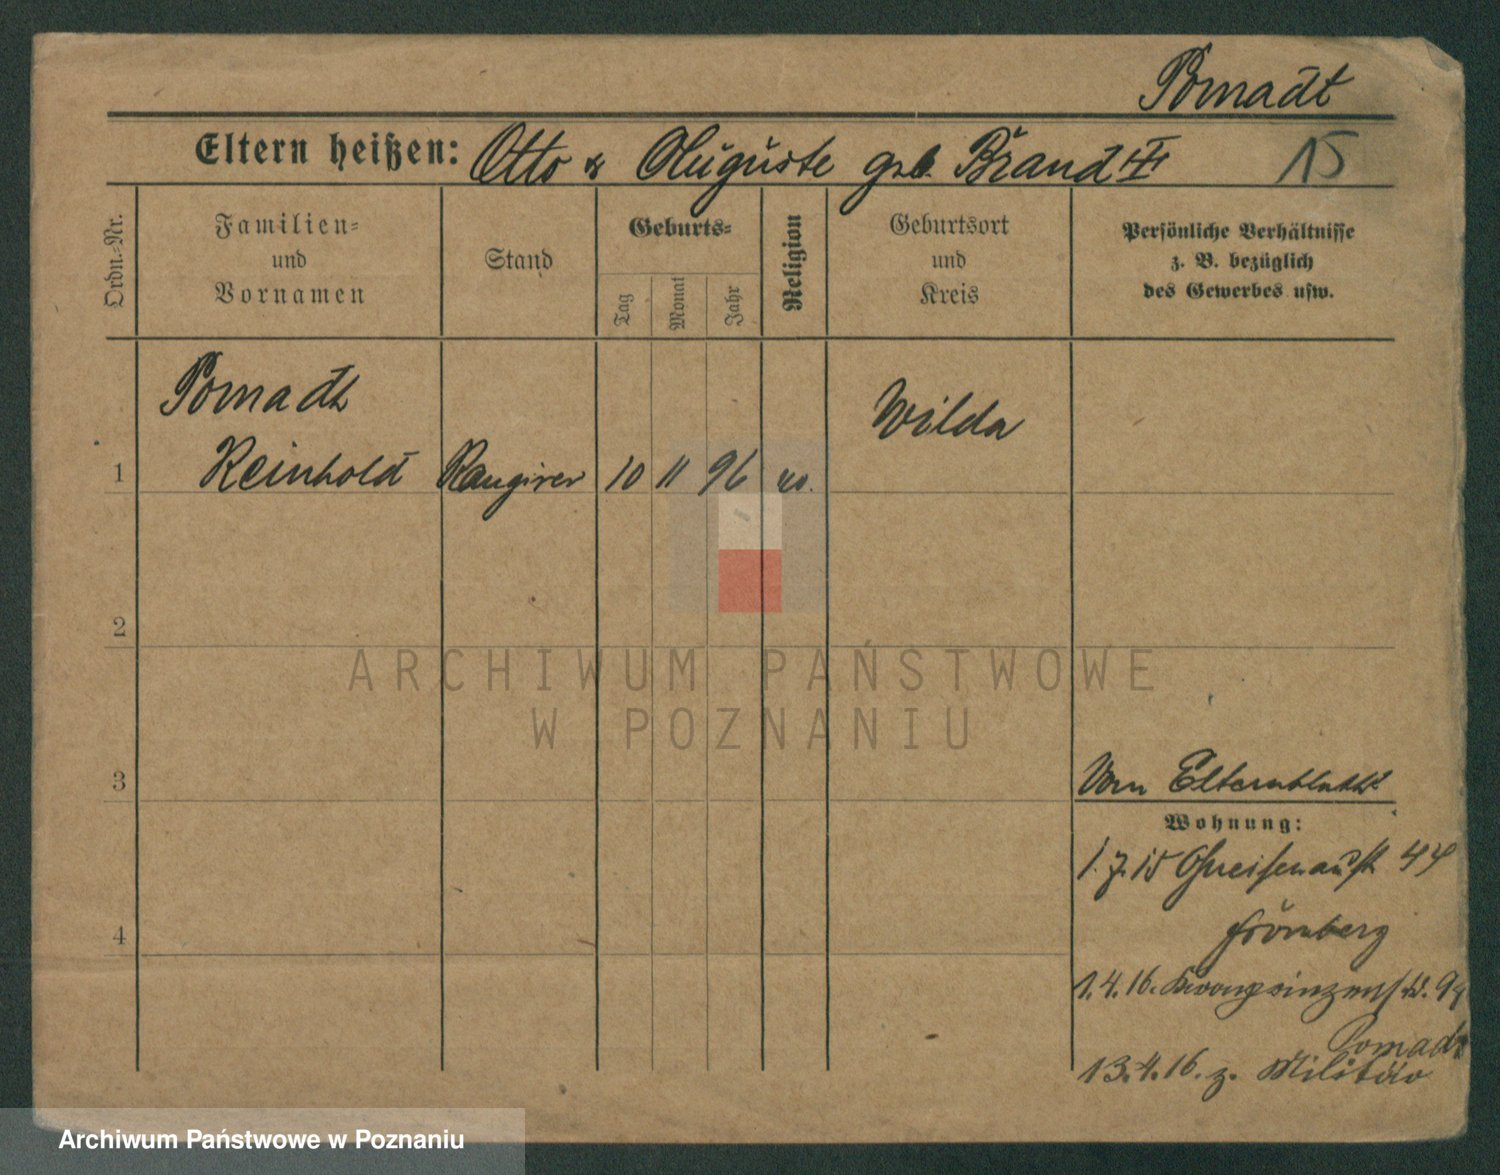 Pomadt
Eltern heißen: Otto & Auguste geb. Brandt
15
Ordn.-Nr.
Familien-
und
Vornamen
Stand
Geburts-
Tag
Monat
Jahr
Religion
Geburtsort
und
Kreis
Persönliche Verhältnisse
z. B. bezüglich
des Gewerbes usw.
Pomadt
Wilda
1 Reinhold Rangirer 10 11 96 ev.
2
ARCHIWUM PAŃSTWOWE
W POZNANIU
3
Vom Elternblatt
Wohnung:
1.7.15 Gneisenaustr 44
4
Frömberg
1.4.16. Kronprinzenstr. 94
Pomadt
13.4.16. z. Militär
Archiwum Państwowe w Poznaniu